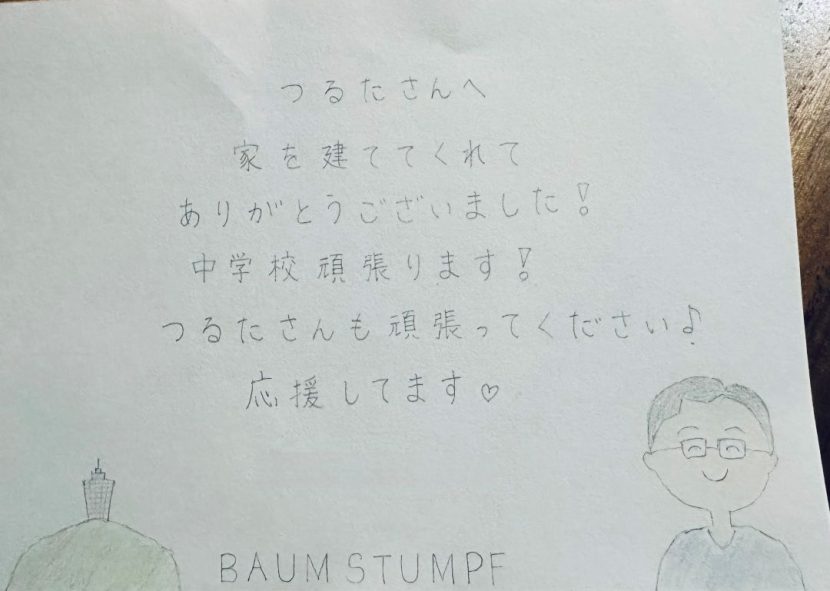 つるたさんへ
家を建ててくれて
ありがとうございました!
中学校頑張ります!
つるたさんも頑張ってください♪
応援してます♡
BAUM STUMPF